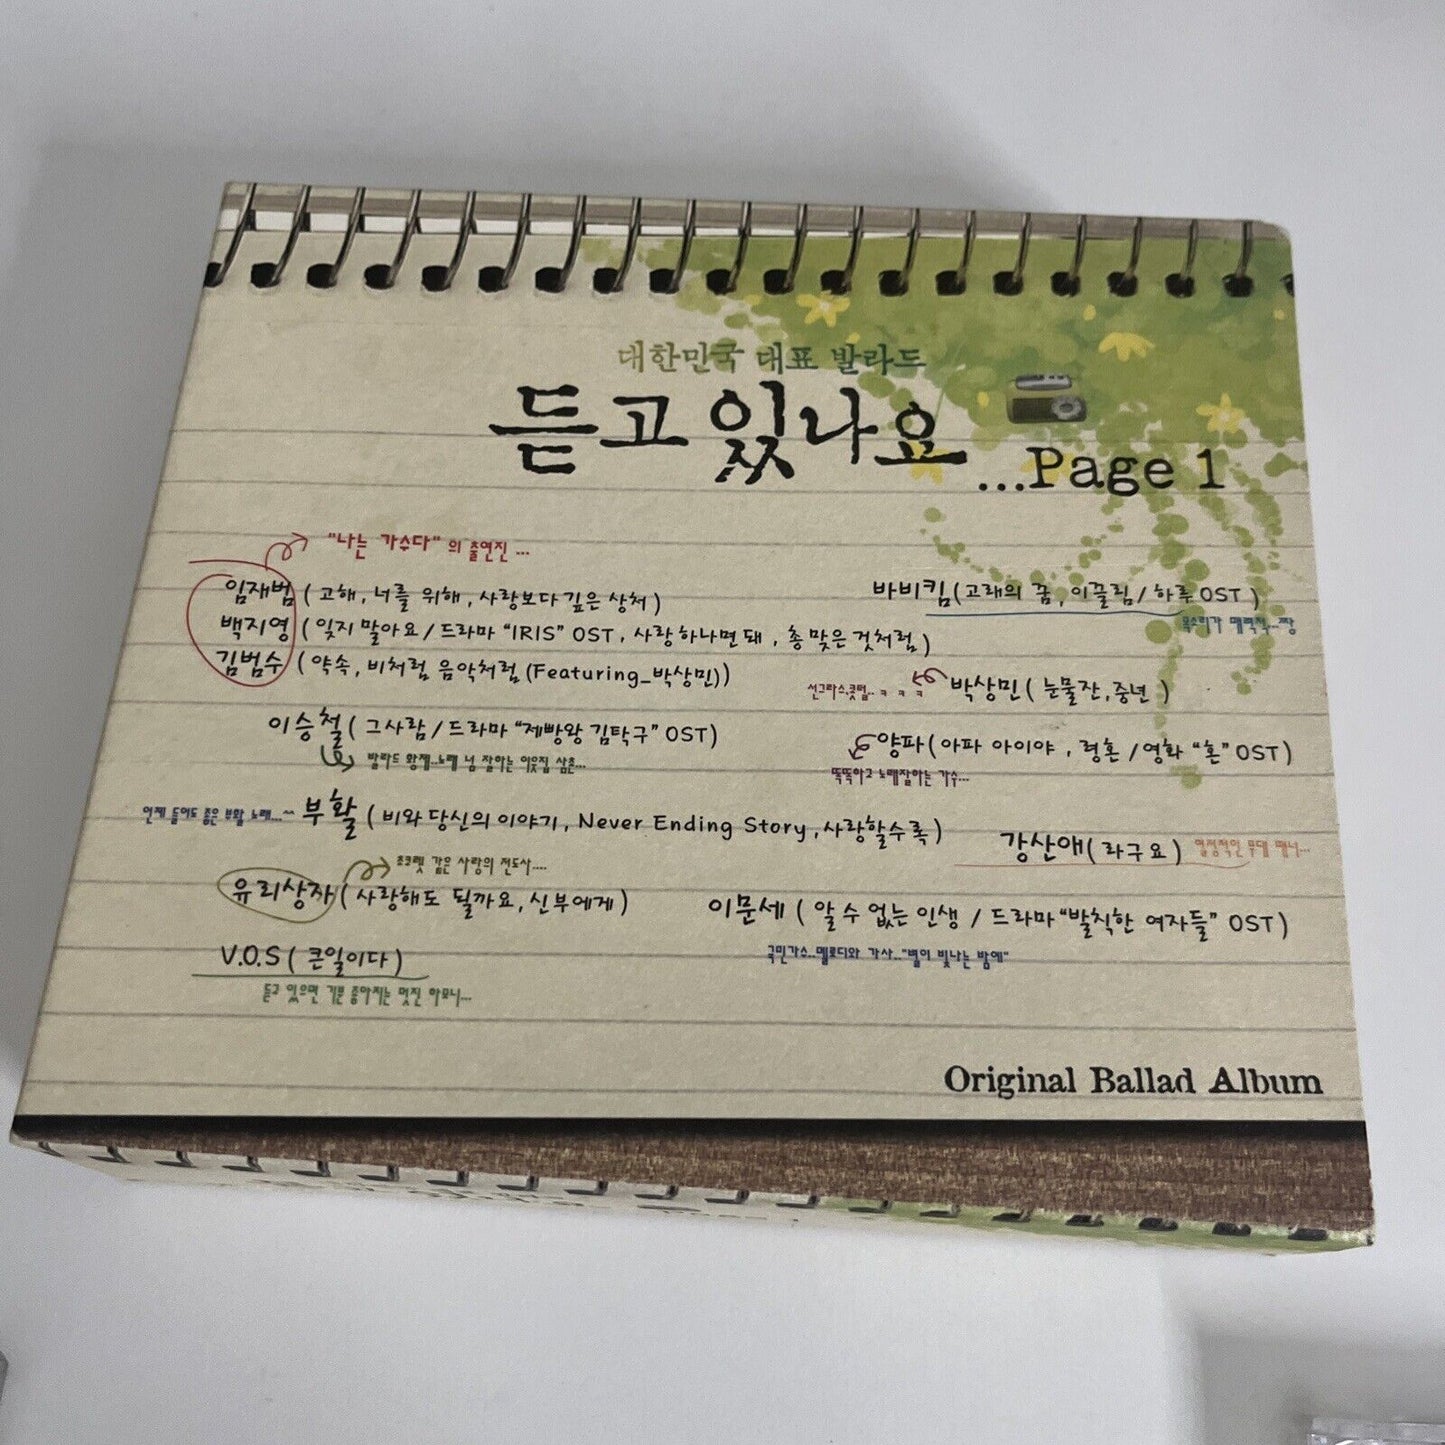 대한민국 대표 발라드
듣고 있나요
...Page 1
"나는 가수다" 의 출연진 ...
임재범 ( 고해, 너를 위해, 사랑보다 깊은 상처 )
백지영 ( 잊지 말아요 / 드라마 "IRIS" OST, 사랑 하나면 돼, 총 맞은 것처럼 )
김범수 ( 약속, 비처럼 음악처럼 (Featuring_박상민))
바비킴 (고래의 꿈, 이끌림 / 하루 OST )
목소리가 매력적...짱
선그라스,콧털.. ㅋ ㅋ ㅋ
박상민 ( 눈물잔, 중년 )
이승철 ( 그사람 / 드라마 "제빵왕 김탁구" OST)
발라드 황제..노래 넘 잘하는 이웃집 삼촌...
양파 (아파 아이야, 령혼 / 영화 "혼" OST)
똑똑하고 노래잘하는 가수...
언제 들어도 좋은 부활 노래...^^
부활 ( 비와 당신의 이야기, Never Ending Story, 사랑할수록 )
강산애 ( 라구요 )
열정적인 무대 매너...
초코렛 같은 사랑의 전도사....
유리상자 ( 사랑해도 될까요, 신부에게 )
이문세 ( 알 수 없는 인생 / 드라마 "발칙한 여자들" OST)
국민가수..멜로디와 가사..."별이 빛나는 밤에"
V.O.S ( 큰일이다 )
듣고 있으면 기분 좋아지는 멋진 하모니...
Original Ballad Album